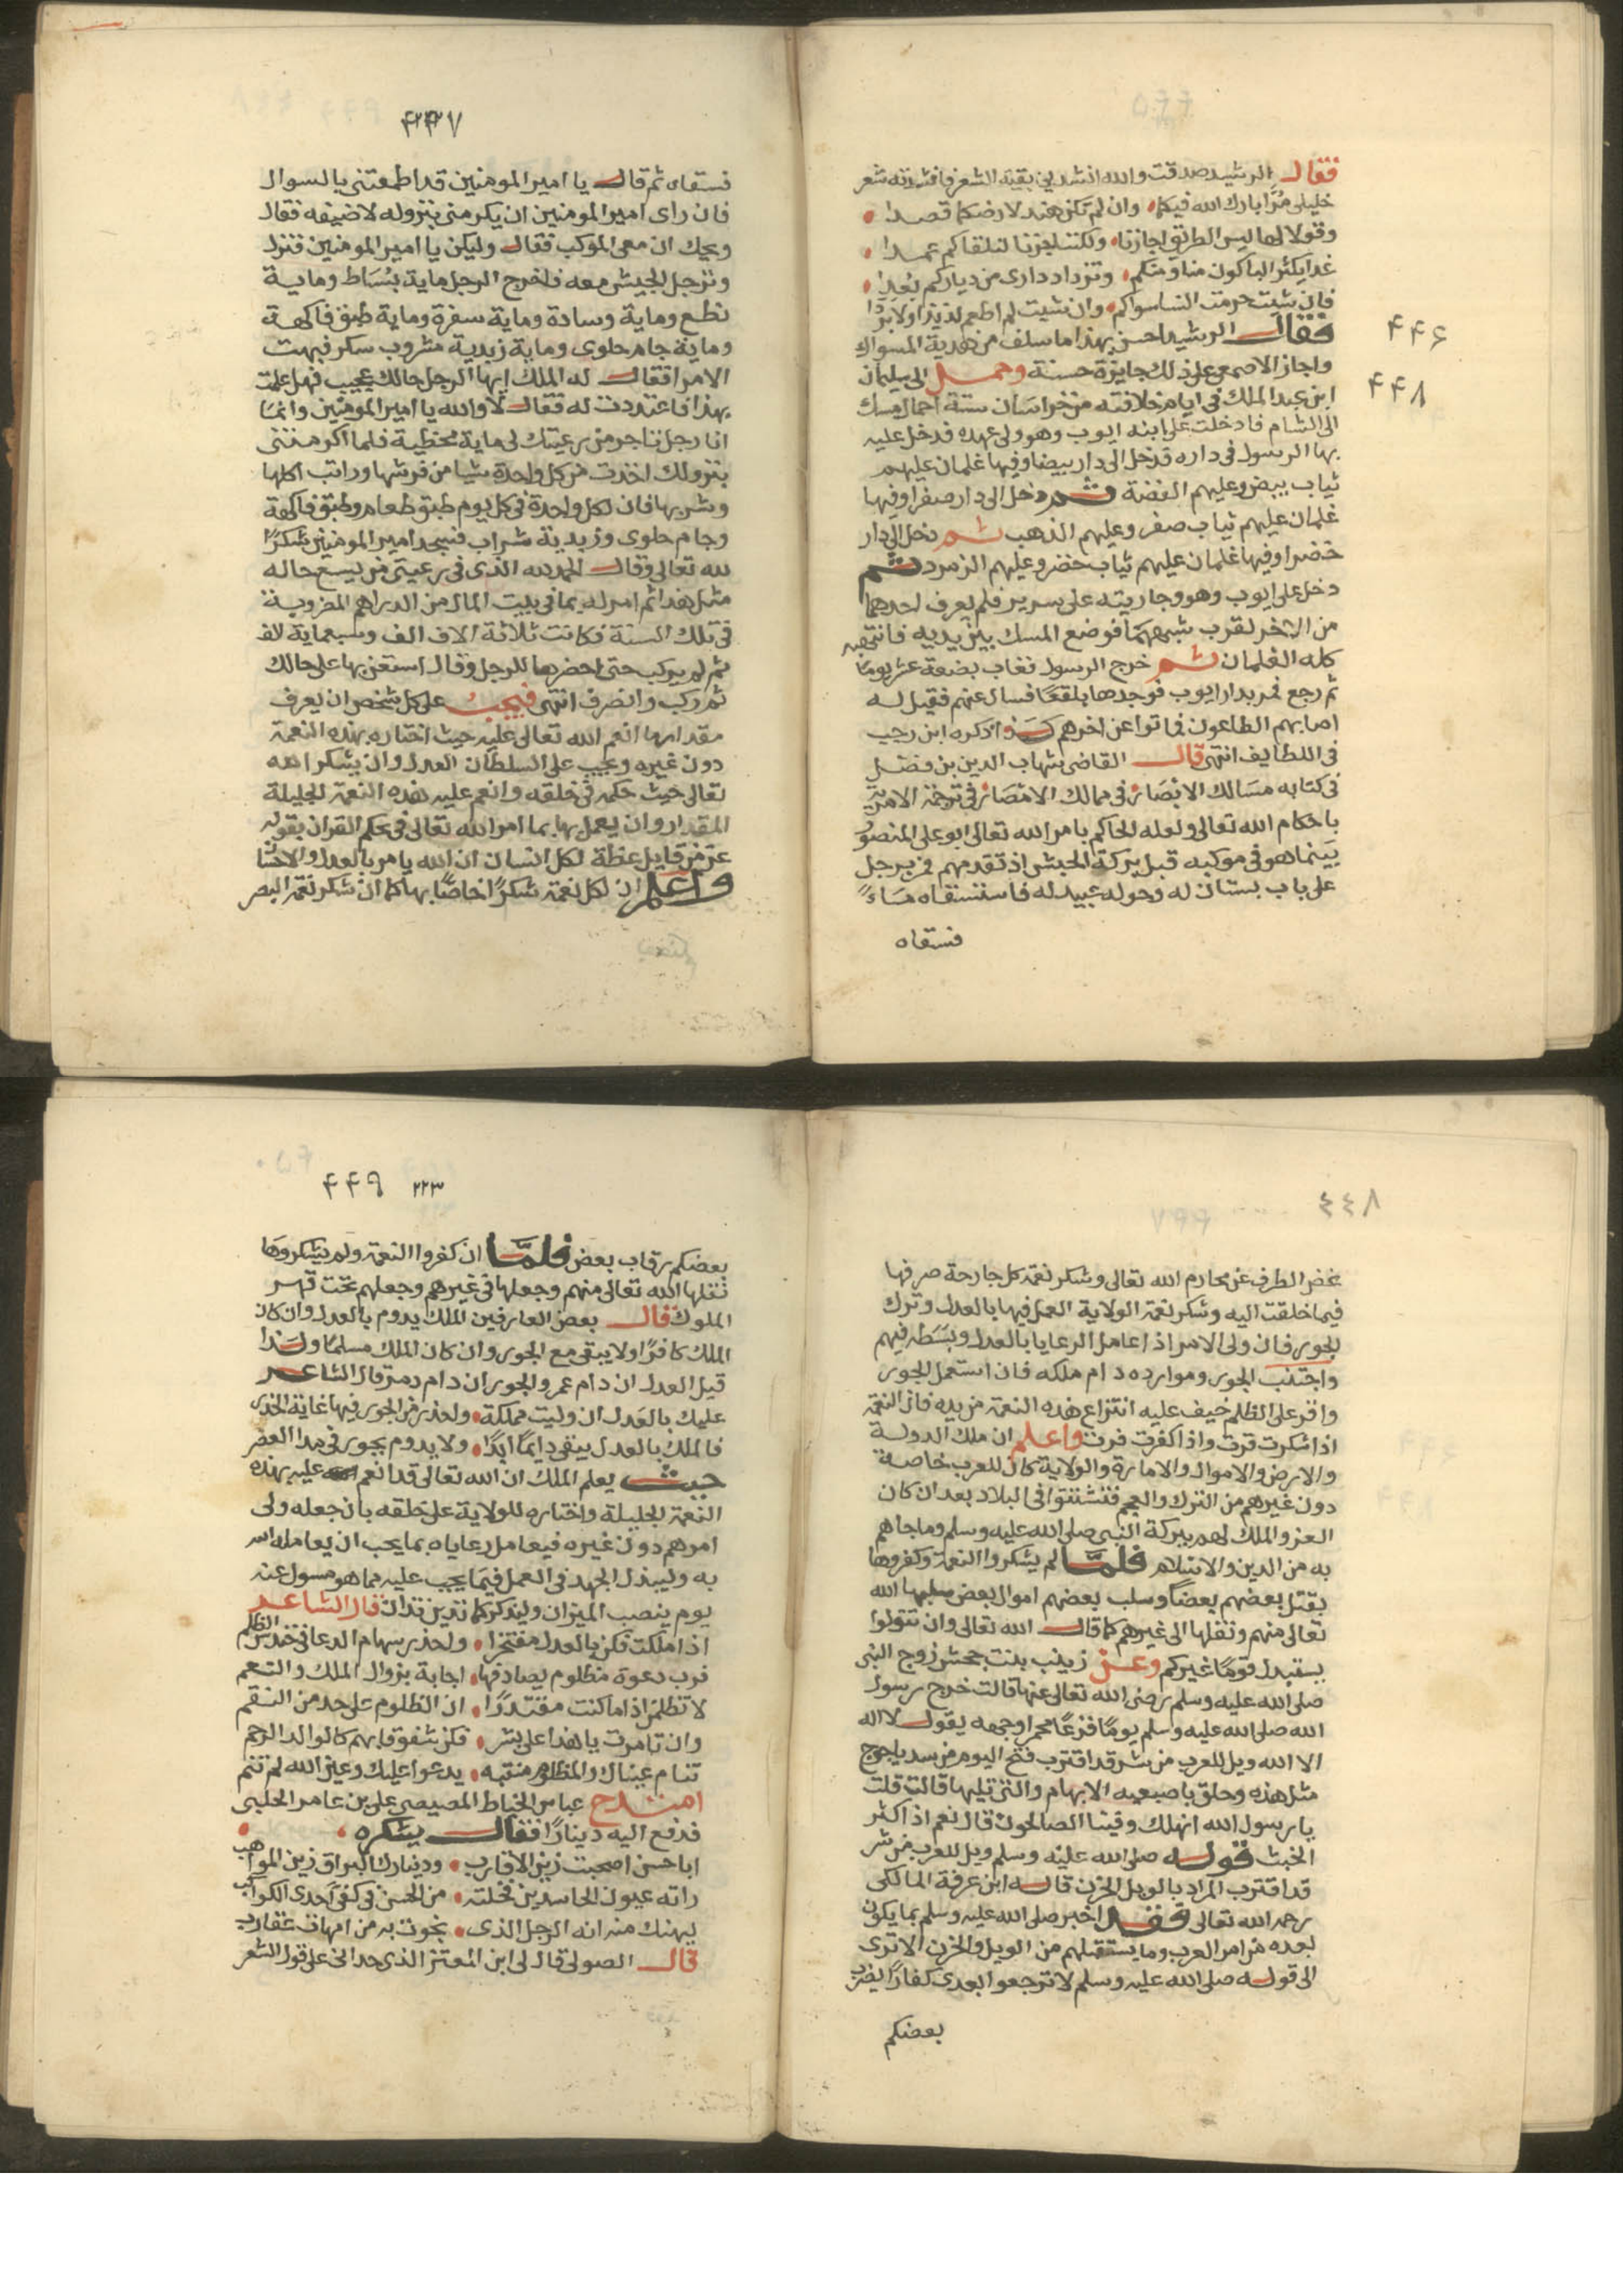 ٤٤٦
٤٤٨
فقال الرشيد صدقت والله انشدني بقية الشعر فانشدته شعر
خليلى مُرَّا بارك الله فيكما وان لم تكن هند لارضكما قصدا
وقولا لها ليس الطريق اجازنا ولكننا جزنا لنلقاكم عمدا
غدا يكثر الباكون منا ومنكم وتزداد دارى من دياركم بُعدا
فان شيت حرمت النسا سواكم وان شيت لم اطعم لذيذا ولا بردا
فقال الرشيد احسن بهذا ما سلف من هدية المسواك
واجاز الاصمعى على ذلك جايزة حسنة وحمل الى سليمان
ابن عبد الملك فى ايام خلافته من خراسان ستة احمال مسك
الى الشام فادخلت على ابنه ايوب وهو ولى عهده فدخل عليه
بها الرسول فى داره فدخل الى دار بيضا وفيها غلمان عليهم
ثياب بيض وعليهم الفضة ثم دخل الى دار صفرا وفيها
غلمان عليهم ثياب صفر وعليهم الذهب ثم دخل الى دار
خضرا وفيها غلمان عليهم ثياب خضر وعليهم الزمرد ثم
دخل على ايوب وهو وجاريته على سرير فلم يعرف احدهما
من الاخر لقرب شبههما فوضع المسك بين يديه فانتهبه
كله الغلمان ثم خرج الرسول فغاب بضعة عشر يوما
ثم رجع فمر بدار ايوب فوجدها بلقعًا فسال عنهم فقيل له
اصابهم الطاعون فماتوا عن اخرهم كذا ذكره ابن رجب
فى اللطايف انتهى قال القاضى شهاب الدين بن فضل
فى كتابه مسالك الابصار فى ممالك الامصار فى ترجمة الامر
باحكام الله تعالى ولعله الحاكم بامر الله تعالى ابو على المنصور
بينما هو فى موكبه قبل بركة الحبش اذ تقدمهم فمر برجل
على باب بستان له وحوله عبيد له فاستسقاه ماءً
فسقاه
٤٤٧
فسقاه ثم قال يا امير المومنين قد اطمعتنى بالسوال
فان راى امير المومنين ان يكرمنى بنزوله لاضيفه فقال
ويحك ان معى الموكب فقال وليكن يا امير المومنين فنزل
ونزجل الجيش معه فاخرج الرجل ماية بُسَاط وماية
نطع وماية وسادة وماية سفرة وماية طبق فاكهة
وماية جام حلوى وماية زبدية مشروب سكر فبهت
الامر فقال له الملك ايها الرجل حالك عجيب فهل علمت
بهذا فاعتددت له فقال لا والله يا امير المومنين وانما
انا رجل تاجر من رعيتك لى ماية محظية فلما اكرمتنى
بنزولك اخذت من كل واحدة شيا من فرشها وراتب اكلها
وشربها فان لكل واحدة فى كل يوم طبق طعام وطبق فاكهة
وجام حلوى وزبدية شراب فسجد امير المومنين شكرًا
لله تعالى وقال الحمد لله الذى فى رعيتى من يسع حاله
مثل هذا ثم امر له بما فى بيت المال من الدراهم المضروبة
فى تلك السنة فكانت ثلاثة الاف الف وسبعماية الف
ثم لم يركب حتى احضرها للرجل وقال استعن بها على حالك
ثم ركب وانصرف انتهى فيجب على كل شخص ان يعرف
مقدار ما انعم الله تعالى عليه حيث اختاره بهذه النعمة
دون غيره ويجب على السلطان العدل وان يشكر الله
تعالى حيث حكمه فى خلقه وانعم عليه هذه النعمة الجليلة
المقدار وان يعمل بها بما امر الله تعالى فى محكم القران بقوله
عز من قايل عظة لكل انسان ان الله يامر بالعدل والاحسان
واعلم ان لكل نعمة شكرًا خاصًا بها كما ان شكر نعمة البصر
٤٤٨
غض الطرف عن محارم الله تعالى وشكر نعمة كل جارحة صرفها
فيما خلقت اليه وشكر نعمة الولاية العمل فيها بالعدل وترك
الجور فان ولى الامر اذا عامل الرعايا بالعدل وبسَطه فيهم
واجتنب الجور وموارده دام ملكه فان استعمل الجور
واقر على الظلم خيف عليه انتزاع هذه النعمة من يده فان النعمة
اذا شكرت قرت واذا كفرت فرت واعلم ان ملك الدولة
والارض والاموال والامارة والولاية كان للعرب خاصة
دون غيرهم من الترك والعجم فتشتتوا فى البلاد بعد ان كان
العز والملك لهم ببركة النبى صلى الله عليه وسلم وما جاهم
به من الدين والاسلام فلما لم يشكروا النعمة وكفروها
بقتل بعضهم بعضًا وسلب بعضهم اموال بعض سلبها الله
تعالى منهم ونقلها الى غيرهم كما قال الله تعالى وان تتولوا
يستبدل قومًا غيركم وعن زينب بنت جحش زوج النبى
صلى الله عليه وسلم رضى الله تعالى عنها قالت خرج رسول
الله صلى الله عليه وسلم يومًا فزعًا محمرا وجهه يقول لا اله
الا الله ويل للعرب من شر قد اقترب فتح اليوم من سد ياجوج
مثل هذه وحلق باصبعيه الابهام والتى تليها قالت قلت
يا رسول الله انهلك وفينا الصالحون قال نعم اذا كثر
الخبث قوله صلى الله عليه وسلم ويل للعرب من شر
قد اقترب المراد بالويل الحزن قاله ابن عرفة المالكى
رحمه الله تعالى فقد اخبر صلى الله عليه وسلم بما يكون
بعده من امر العرب وما يستقبلهم من الويل والحزن الا ترى
الى قوله صلى الله عليه وسلم لا ترجعوا بعدى كفارًا يضرب
بعضكم
٢٢٣ ٤٤٩
بعضكم رقاب بعض فلمَّا ان كفروا النعمة ولم يشكروها
نقلها الله تعالى منهم وجعلها فى غيرهم وجعلهم تحت قهر
الملوك قال بعض العارفين الملك يدوم بالعدل وان كان
الملك كافرًا ولا يبقى مع الجور وان كان الملك مسلمًا ولهذا
قيل العدل ان دام عمر والجور ان دام دمر قال الشاعر
عليك بالعدل ان وليت مملكة واحذر من الجور فيها غاية الحذر
فالملك بالعدل يبقى دايمًا ابدًا ولا يدوم بجور فى مدا العمر
حيث يعلم الملك ان الله تعالى قد انعم عليه بهذه
النعمة الجليلة واختاره للولاية على خلقه بان جعله ولى
امرهم دون غيره فيعامل رعاياه بما يجب ان يعامله الله
به وليبذل الجهد فى العمل فيما يجب عليه مما هو مسول عنه
يوم ينصب الميزان وليذكر كما تدين تدان قال الشاعر
اذا ملكت فكن بالعدل مفتخرا واحذر سهام الدعا فى حندس الظلم
فرب دعوة مظلوم يصادفها اجابة بزوال الملك والنعم
لا تظلمن اذا ما كنت مقتدرًا ان الظلوم على حد من النقم
وان تامرت يا هذا على بشر فكن شفوقا بهم كالوالد الرحم
تنام عيناك والمظلوم منتبه يدعوا عليك وعين الله لم تنم
امتدح عباس الخياط المصيصى على بن عامر الحلبى
فدفع اليه دينارًا فقال يشكره
ابا حسن اصبحت زين الاقارب ودينارك البراق زين المواهب
راته عيون الحاسدين فخلته من الحسن فى كفى احدى الكواكب
ليهنك منه انه الرجل الذى نجوت به من امهات عقارب
قال الصولى قال لى ابن المعتز الذى حدانى على قول الشعر